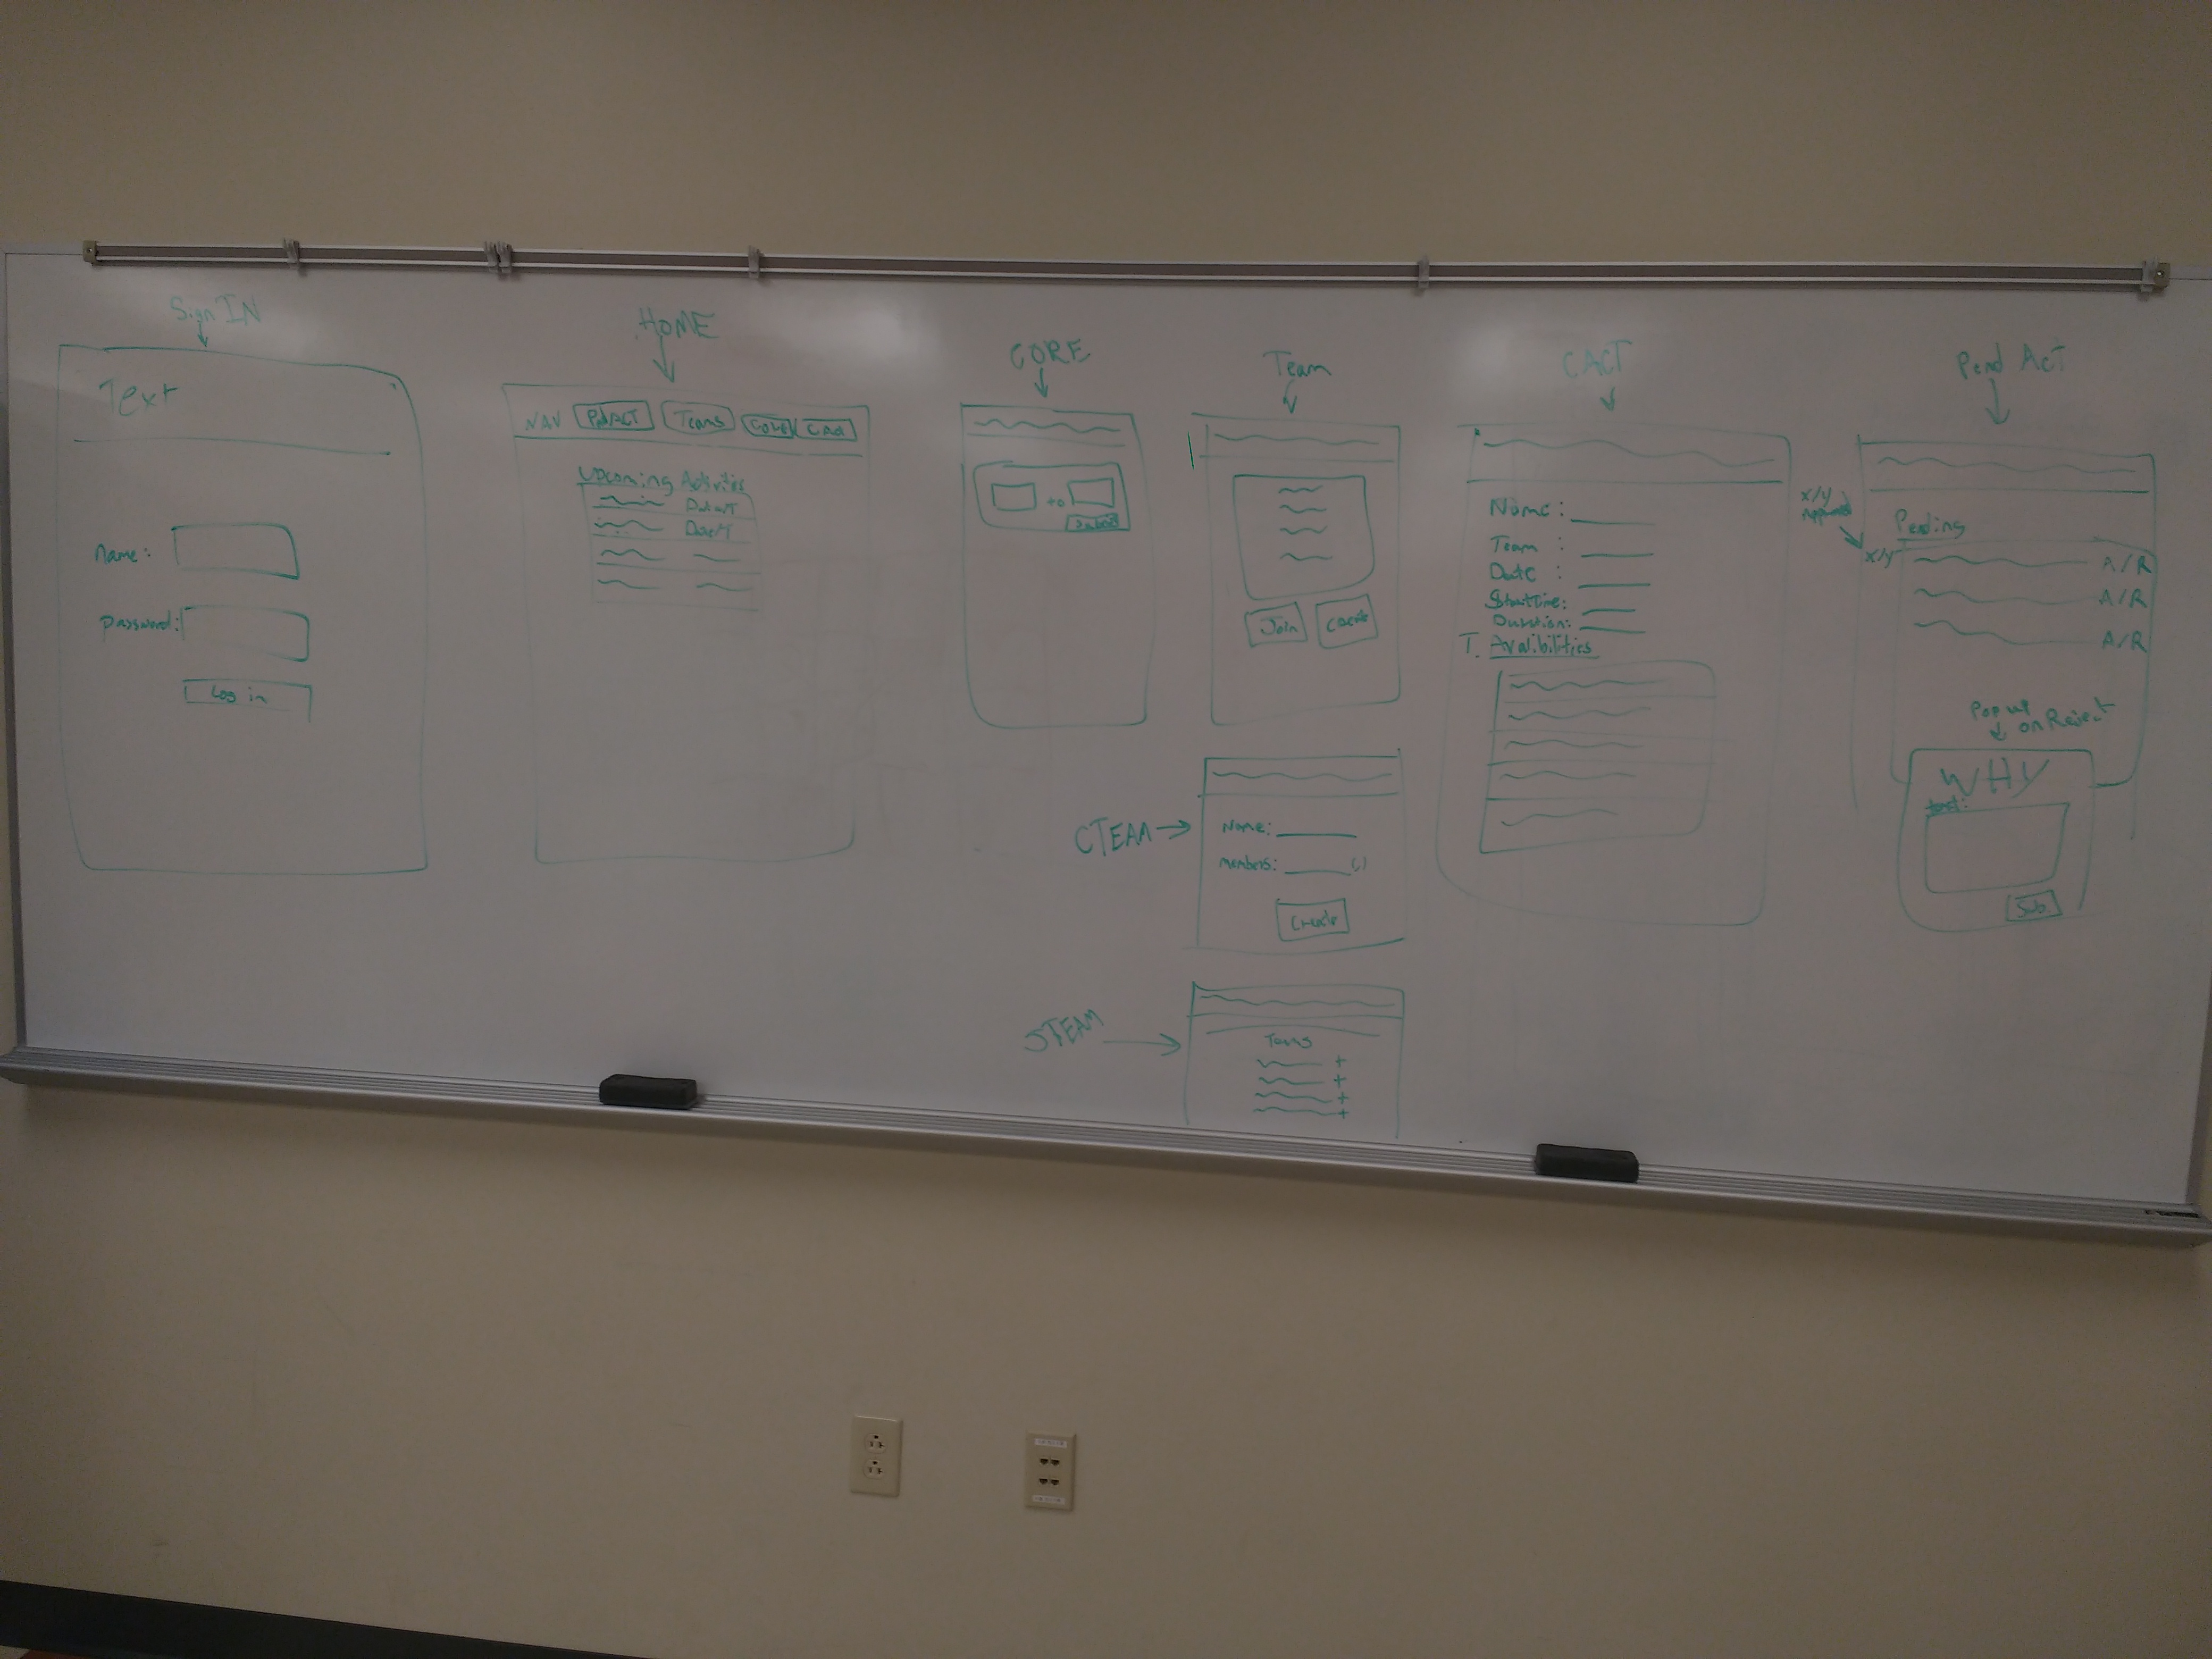 Sign IN
Text
Name:
Password:
Log in
HOME
NAV PndACT Teams CORE CAct
Upcoming Activities
Date/T
Date/T
CORE
to
Submit
Team
Join Create
CTEAM
Name:
Members: (,)
Create
STEAM
Teams
+
+
+
+
CACT
Name:
Team :
Date :
StartTime:
Duration:
T. Avalibilities
Pend ACT
x/y
Approved
Pending
x/y A/R
A/R
A/R
Pop up
on Reject
WHY
text:
Sub.